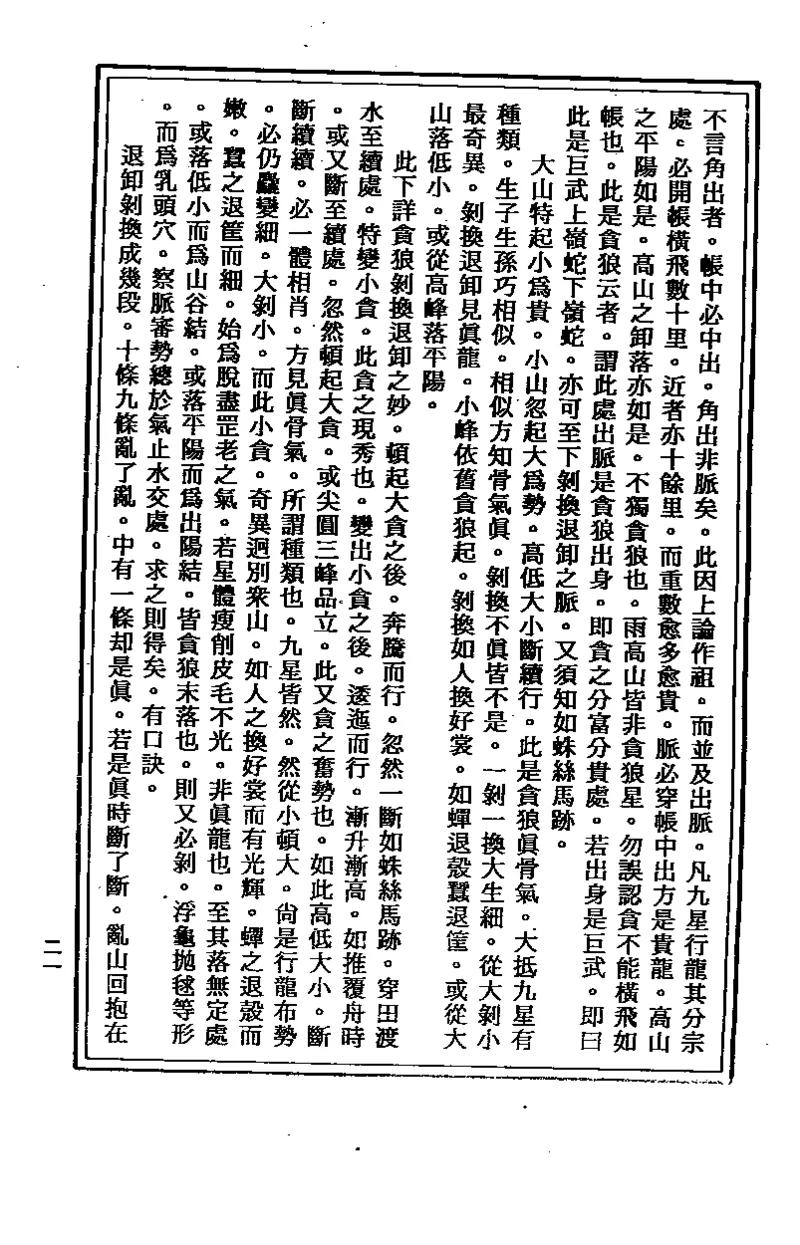 不言角出者。帳中必中出。角出非脈矣。此因上論作祖。而並及出脈。凡九星行龍其分宗
處。必開帳橫飛數十里。近者亦十餘里。而重數愈多愈貴。脈必穿帳中出方是貴龍。高山
之平陽如是。高山之卸落亦如是。不獨貪狼也。雨高山皆非貪狼星。勿誤認貪不能橫飛如
帳也。此是貪狼云者。謂此處出脈是貪狼出身。即貪之分富分貴處。若出身是巨武。即曰
此是巨武上嶺蛇下嶺蛇。亦可至下剝換退卸之脈。又須知如蛛絲馬跡。
大山特起小爲貴。小山忽起大爲勢。高低大小斷續行。此是貪狼眞骨氣。大抵九星有
種類。生子生孫巧相似。相似方知骨氣眞。剝換不眞皆不是。一剝一換大生細。從大剝小
最奇異。剝換退卸見眞龍。小峰依舊貪狼起。剝換如人換好裳。如蟬退殼蠶退筐。或從大
山落低小。或從高峰落平陽。
此下詳貪狼剝換退卸之妙。頓起大貪之後。奔騰而行。忽然一斷如蛛絲馬跡。穿田渡
水至續處。特變小貪。此貪之現秀也。變出小貪之後。逶迤而行。漸升漸高。如推覆舟時
。或又斷至續處。忽然頓起大貪。或尖圓三峰品立。此又貪之奮勢也。如此高低大小。斷
斷續續。必一體相肖。方見眞骨氣。所謂種類也。九星皆然。然從小頓大。尙是行龍布勢
。必仍麤變細。大剝小。而此小貪。奇異迥別衆山。如人之換好裳而有光輝。蟬之退殼而
嫩。蠶之退筐而細。始爲脫盡罡老之氣。若星體瘦削皮毛不光。非眞龍也。至其落無定處
。或落低小而爲山谷結。或落平陽而爲出陽結。皆貪狼末落也。則又必剝。浮龜拋毬等形
。而爲乳頭穴。察脈審勢總於氣止水交處。求之則得矣。有口訣。
退卸剝換成幾段。十條九條亂了亂。中有一條却是眞。若是眞時斷了斷。亂山回抱在
二一